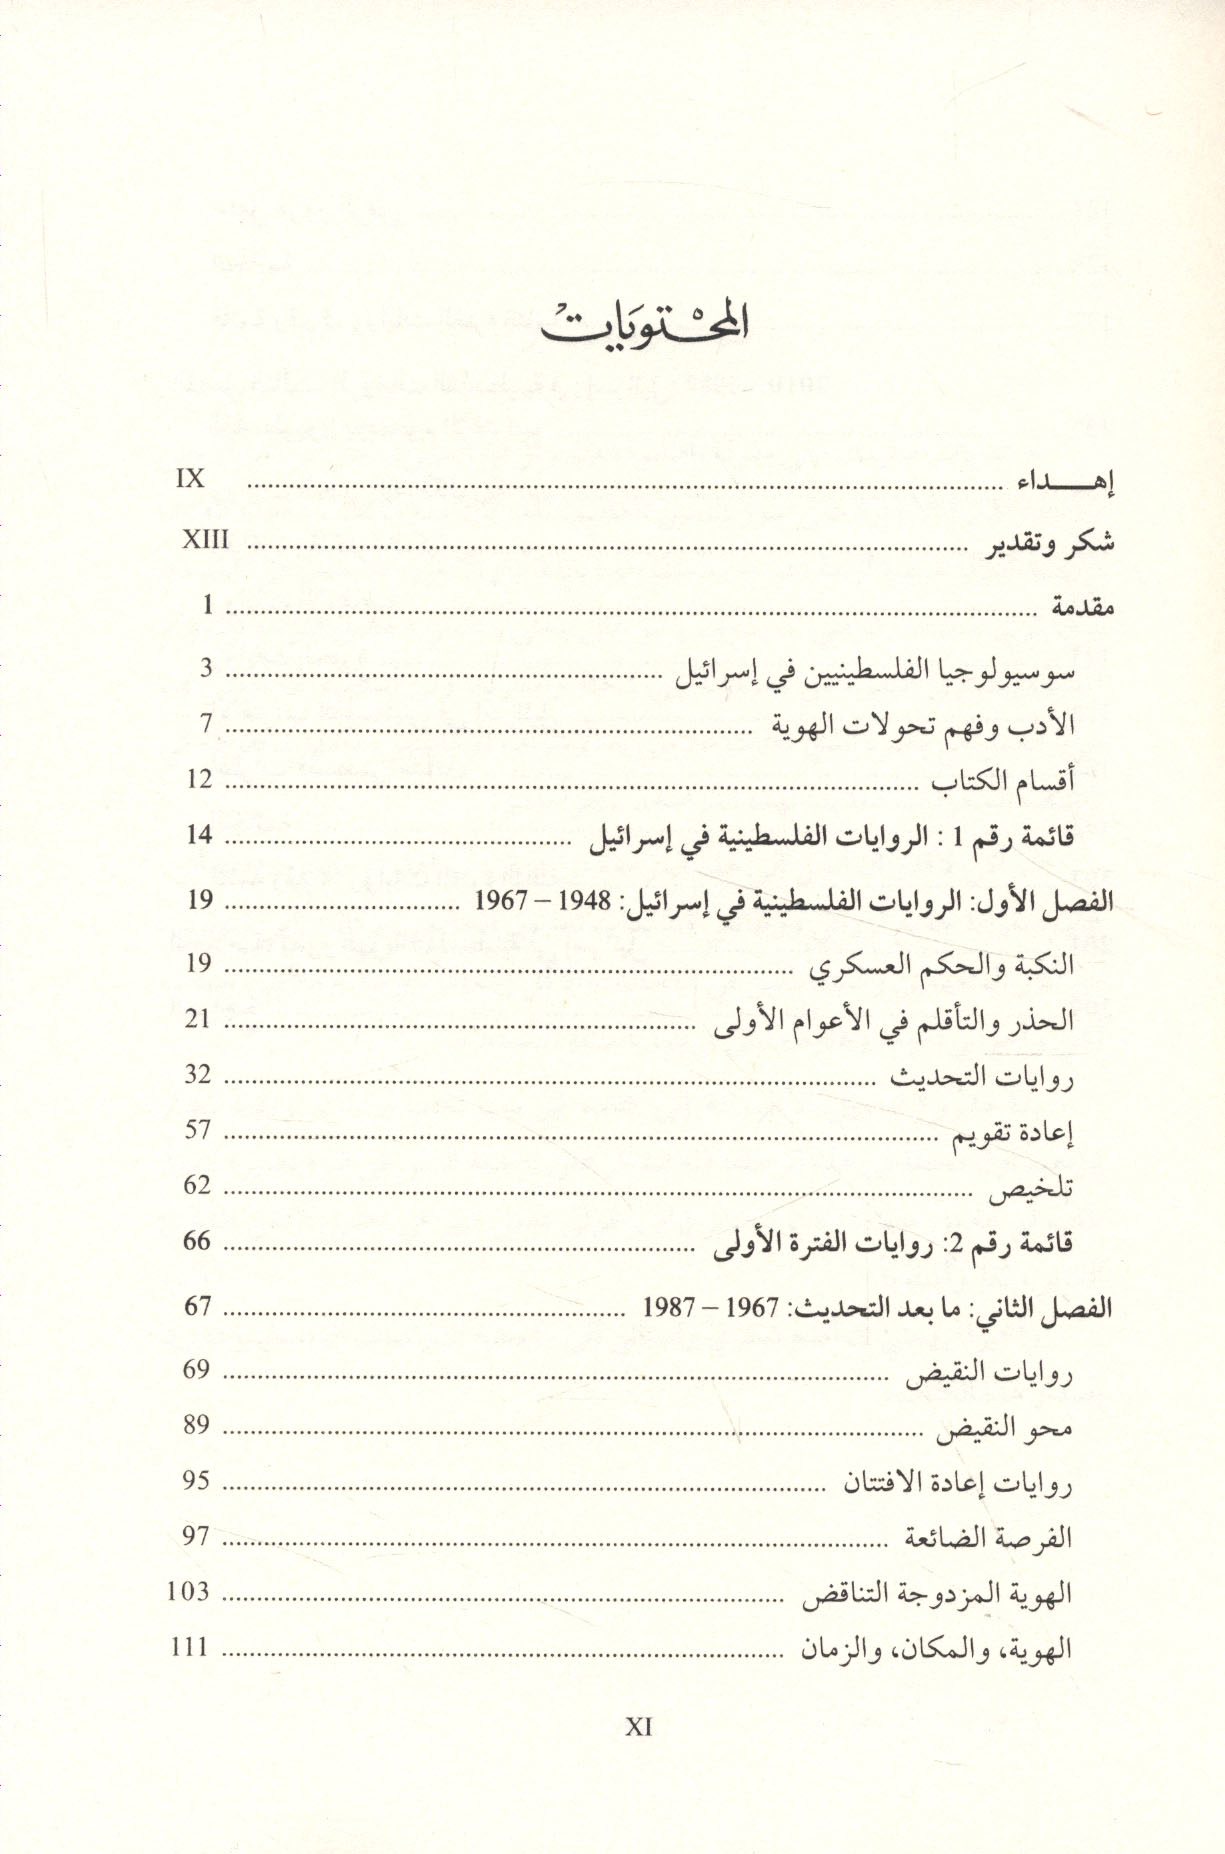 المحتويات
إهـــداء ........................ IX
شكر وتقدير ........................ XIII
مقدمة ........................ 1
سوسيولوجيا الفلسطينيين في إسرائيل ........................ 3
الأدب وفهم تحولات الهوية ........................ 7
أقسام الكتاب ........................ 12
قائمة رقم 1 : الروايات الفلسطينية في إسرائيل ........................ 14
الفصل الأول: الروايات الفلسطينية في إسرائيل: 1948 – 1967 ........................ 19
النكبة والحكم العسكري ........................ 19
الحذر والتأقلم في الأعوام الأولى ........................ 21
روايات التحديث ........................ 32
إعادة تقويم ........................ 57
تلخيص ........................ 62
قائمة رقم 2: روايات الفترة الأولى ........................ 66
الفصل الثاني: ما بعد التحديث: 1967 – 1987 ........................ 67
روايات النقيض ........................ 69
محو النقيض ........................ 89
روايات إعادة الافتتان ........................ 95
الفرصة الضائعة ........................ 97
الهوية المزدوجة التناقض ........................ 103
الهوية، والمكان، والزمان ........................ 111
XI